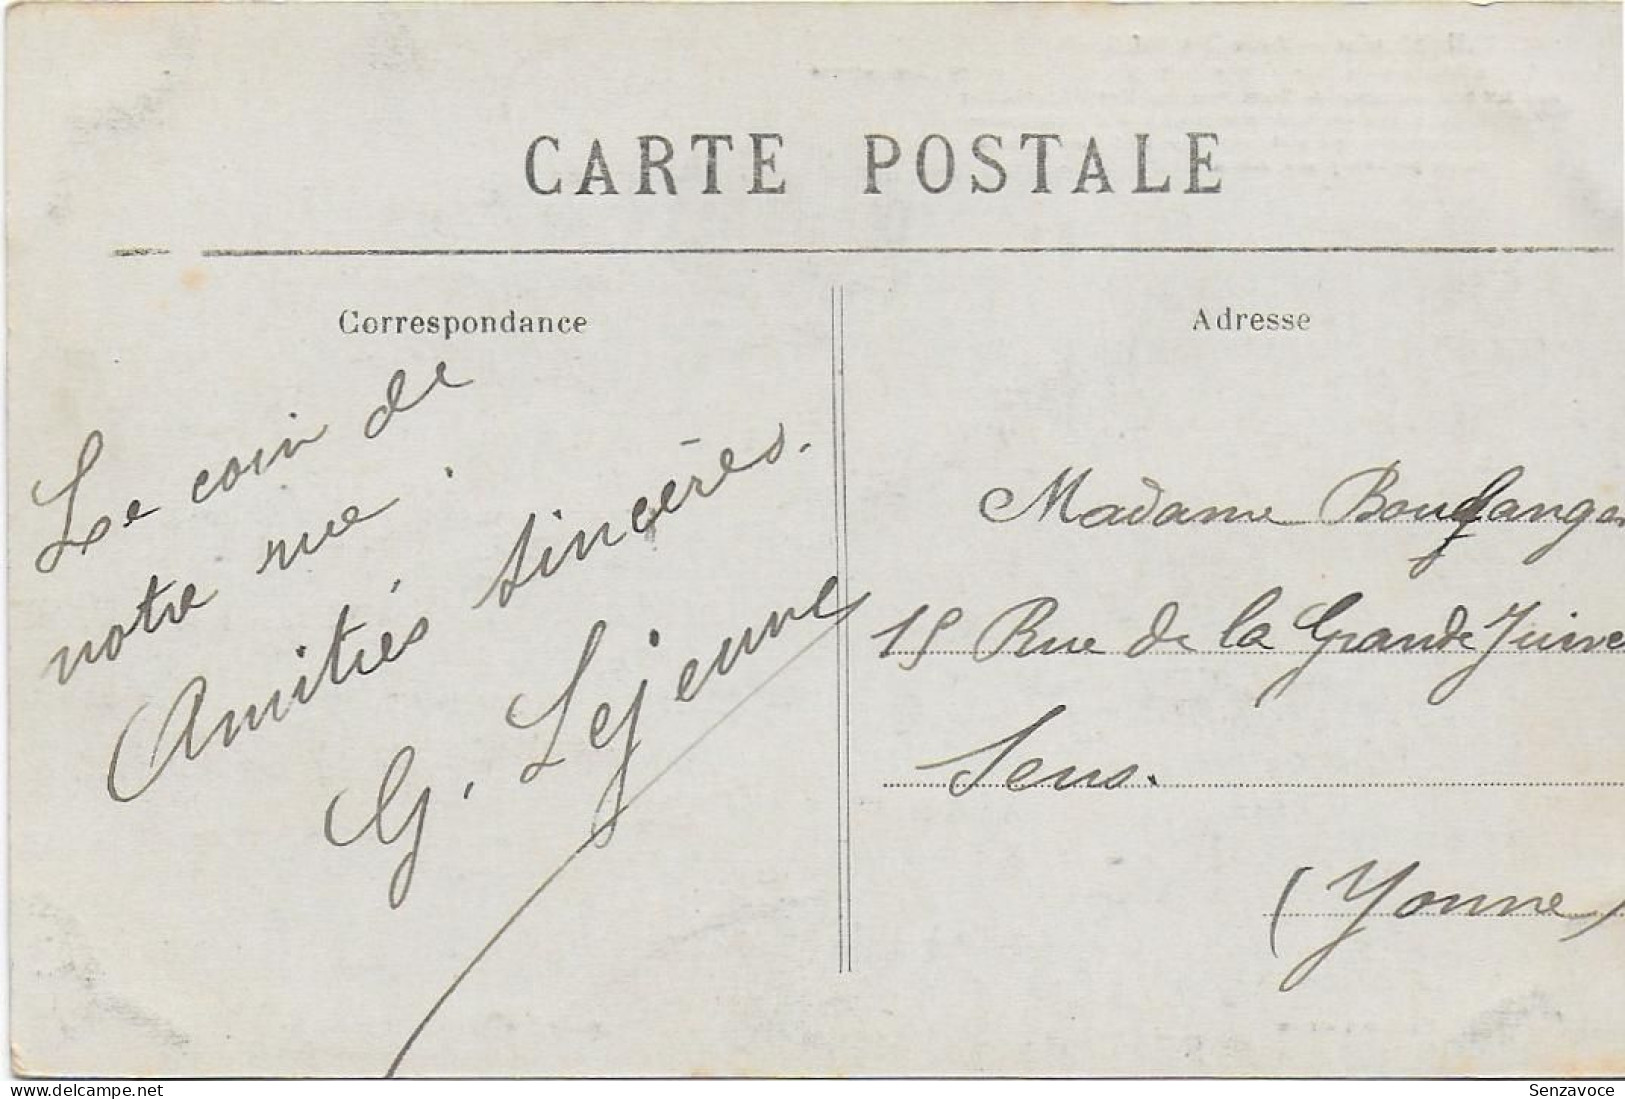 CARTE POSTALE
Correspondance
Le coin de
notre rue.
Amitiés sincères.
G. Lejeune
Adresse
Madame Boulanger
15 Rue de la Grande Juive
Sens.
(Yonne)
www.delcampe.net
Senzavoce